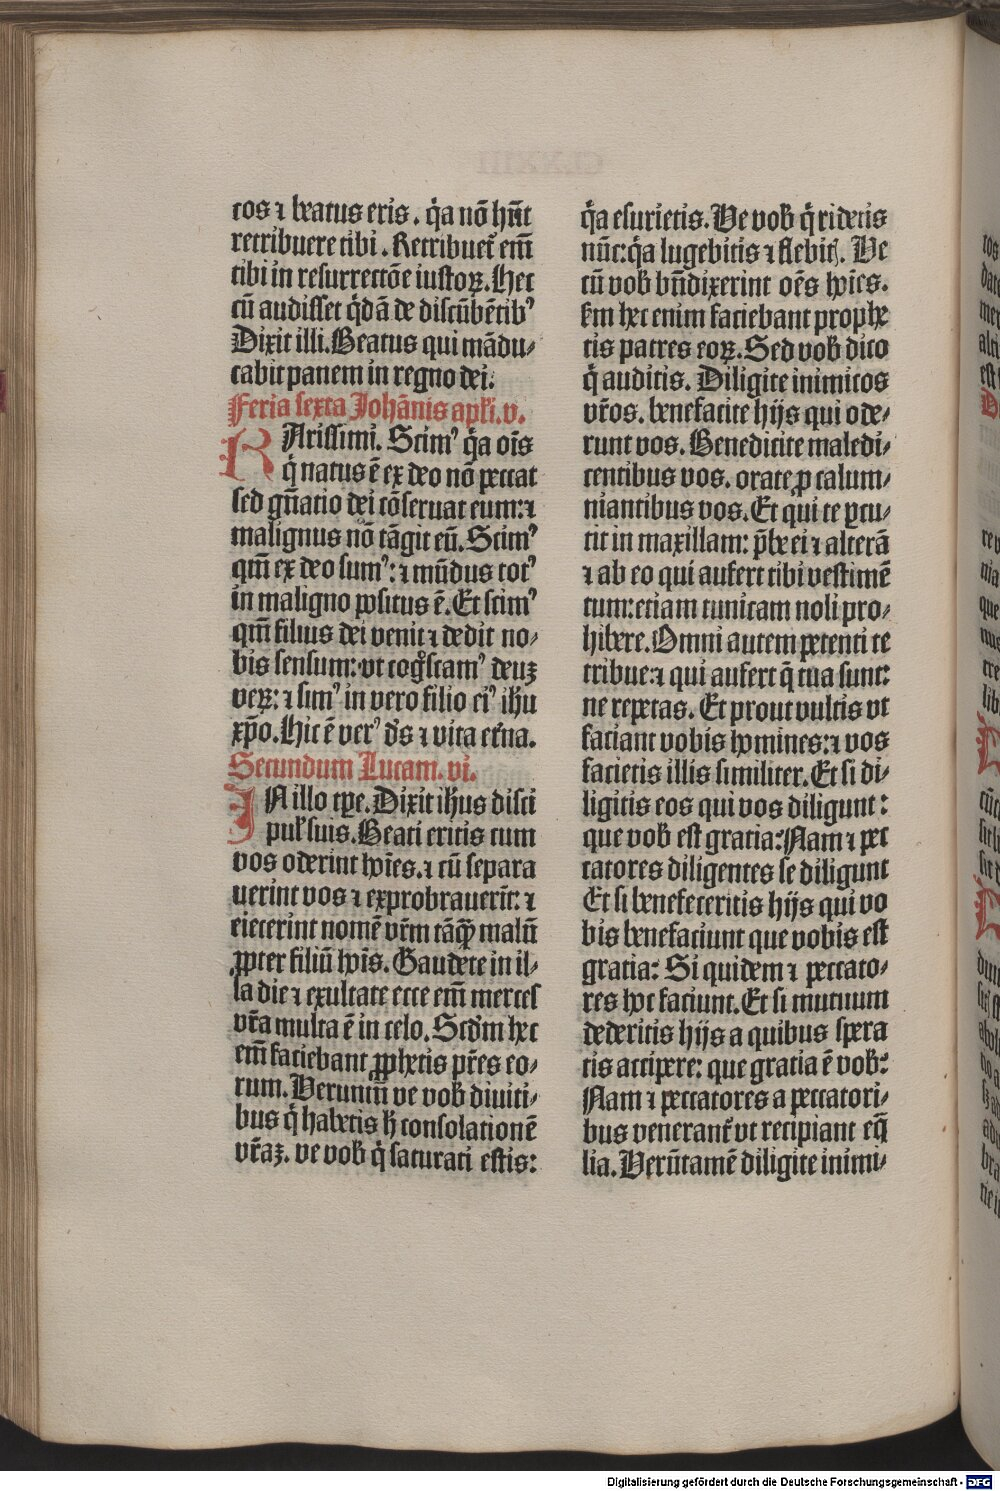 cos ⁊ beatus eris. q̇a nō hn̄t
retribuere tibi. Retribuet᷑ em̄
tibi in resurrectōe iustoꝝ. Hec
cū audisset q̇dā de discūbētibꝰ
Dixit illi. Beatus qui mādu⸗
cabit panem in regno dei.
Feria sexta Johānis apl̄i. v.
KArissimi. Scimꝰ q̇a oīs
q̇ natus ē ex deo nō peccat
sed gn̄atio dei cōseruat eum: ⁊
malignus nō tāgit eū. Scimꝰ
qm̄ ex deo sumꝰ: ⁊ mūdus totꝰ
in maligno positus ē. Et scimꝰ
qm̄ filius dei venit ⁊ dedit no⸗
bis sensum: vt cogͦscamꝰ deuꝫ
veꝝ: ⁊ simꝰ in vero filio eiꝰ ih̄u
xp̄o. Hic ē verꝰ d̄s ⁊ vita et̄na.
Secundum Lucam. vi.
IN illo tp̄e. Dixit ih̄us disci
pul̕ suis. Beati eritis cum
vos oderint hoīes. ⁊ cū separa
uerint vos ⁊ exprobrauerīt: ⁊
eiecerint nomē vr̄m tāꝙ̄ malū
ꝓpter filiū hoīs. Gaudete in il⸗
la die ⁊ exultate ecce em̄ merces
vr̄a multa ē in celo. Scd̄m hec
em̄ faciebant ꝓphetis pr̄es eo⸗
rum. Verunm̄ ve vob̕ diuiti⸗
bus q̇ habetis h̕ consolationē
vr̄aꝫ. ve vob̕ q̇ saturati estis:
q̇a esurietis. Ve vob̕ q̇ ridetis
nūc: q̇a lugebitis ⁊ flebitꝭ. Ve
cū vob̕ bn̄dixerint oēs hoīes.
km̄ hec enim faciebant prophe
tis patres eoꝝ. Sed vob̕ dico
q̇ auditis. Diligite inimicos
vr̄os. benefacite hijs qui ode⸗
runt vos. Benedicite maledi⸗
centibus vos. orate ꝓ calum⸗
niantibus vos. Et qui te ꝑcu⸗
tit in maxillam: p̄be ei ⁊ alterā
⁊ ab eo qui aufert tibi vestimē
tum: etiam tunicam noli pro⸗
hibere. Omni autem petenti te
tribue: ⁊ qui aufert q̄ tua sunt:
ne repetas. Et prout vultis vt
faciant vobis homines: ⁊ vos
facietis illis similiter. Et si di⸗
ligitis eos qui vos diligunt:
que vob̕ est gratia: Nam ⁊ pec
catores diligentes se diligunt
Et si benefeceritis hijs qui vo
bis benefaciunt que vobis est
gratia: Si quidem ⁊ peccato⸗
res hoc faciunt. Et si mutuum
dederitis hijs a quibus spera
tis accipere: que gratia ē vob̕:
Nam ⁊ peccatores a peccatori⸗
bus venerant᷑ vt recipiant eq̄
lia. Verūtamē diligite inimi⸗
Digitalisierung gefördert durch die Deutsche Forschungsgemeinschaft - DFG